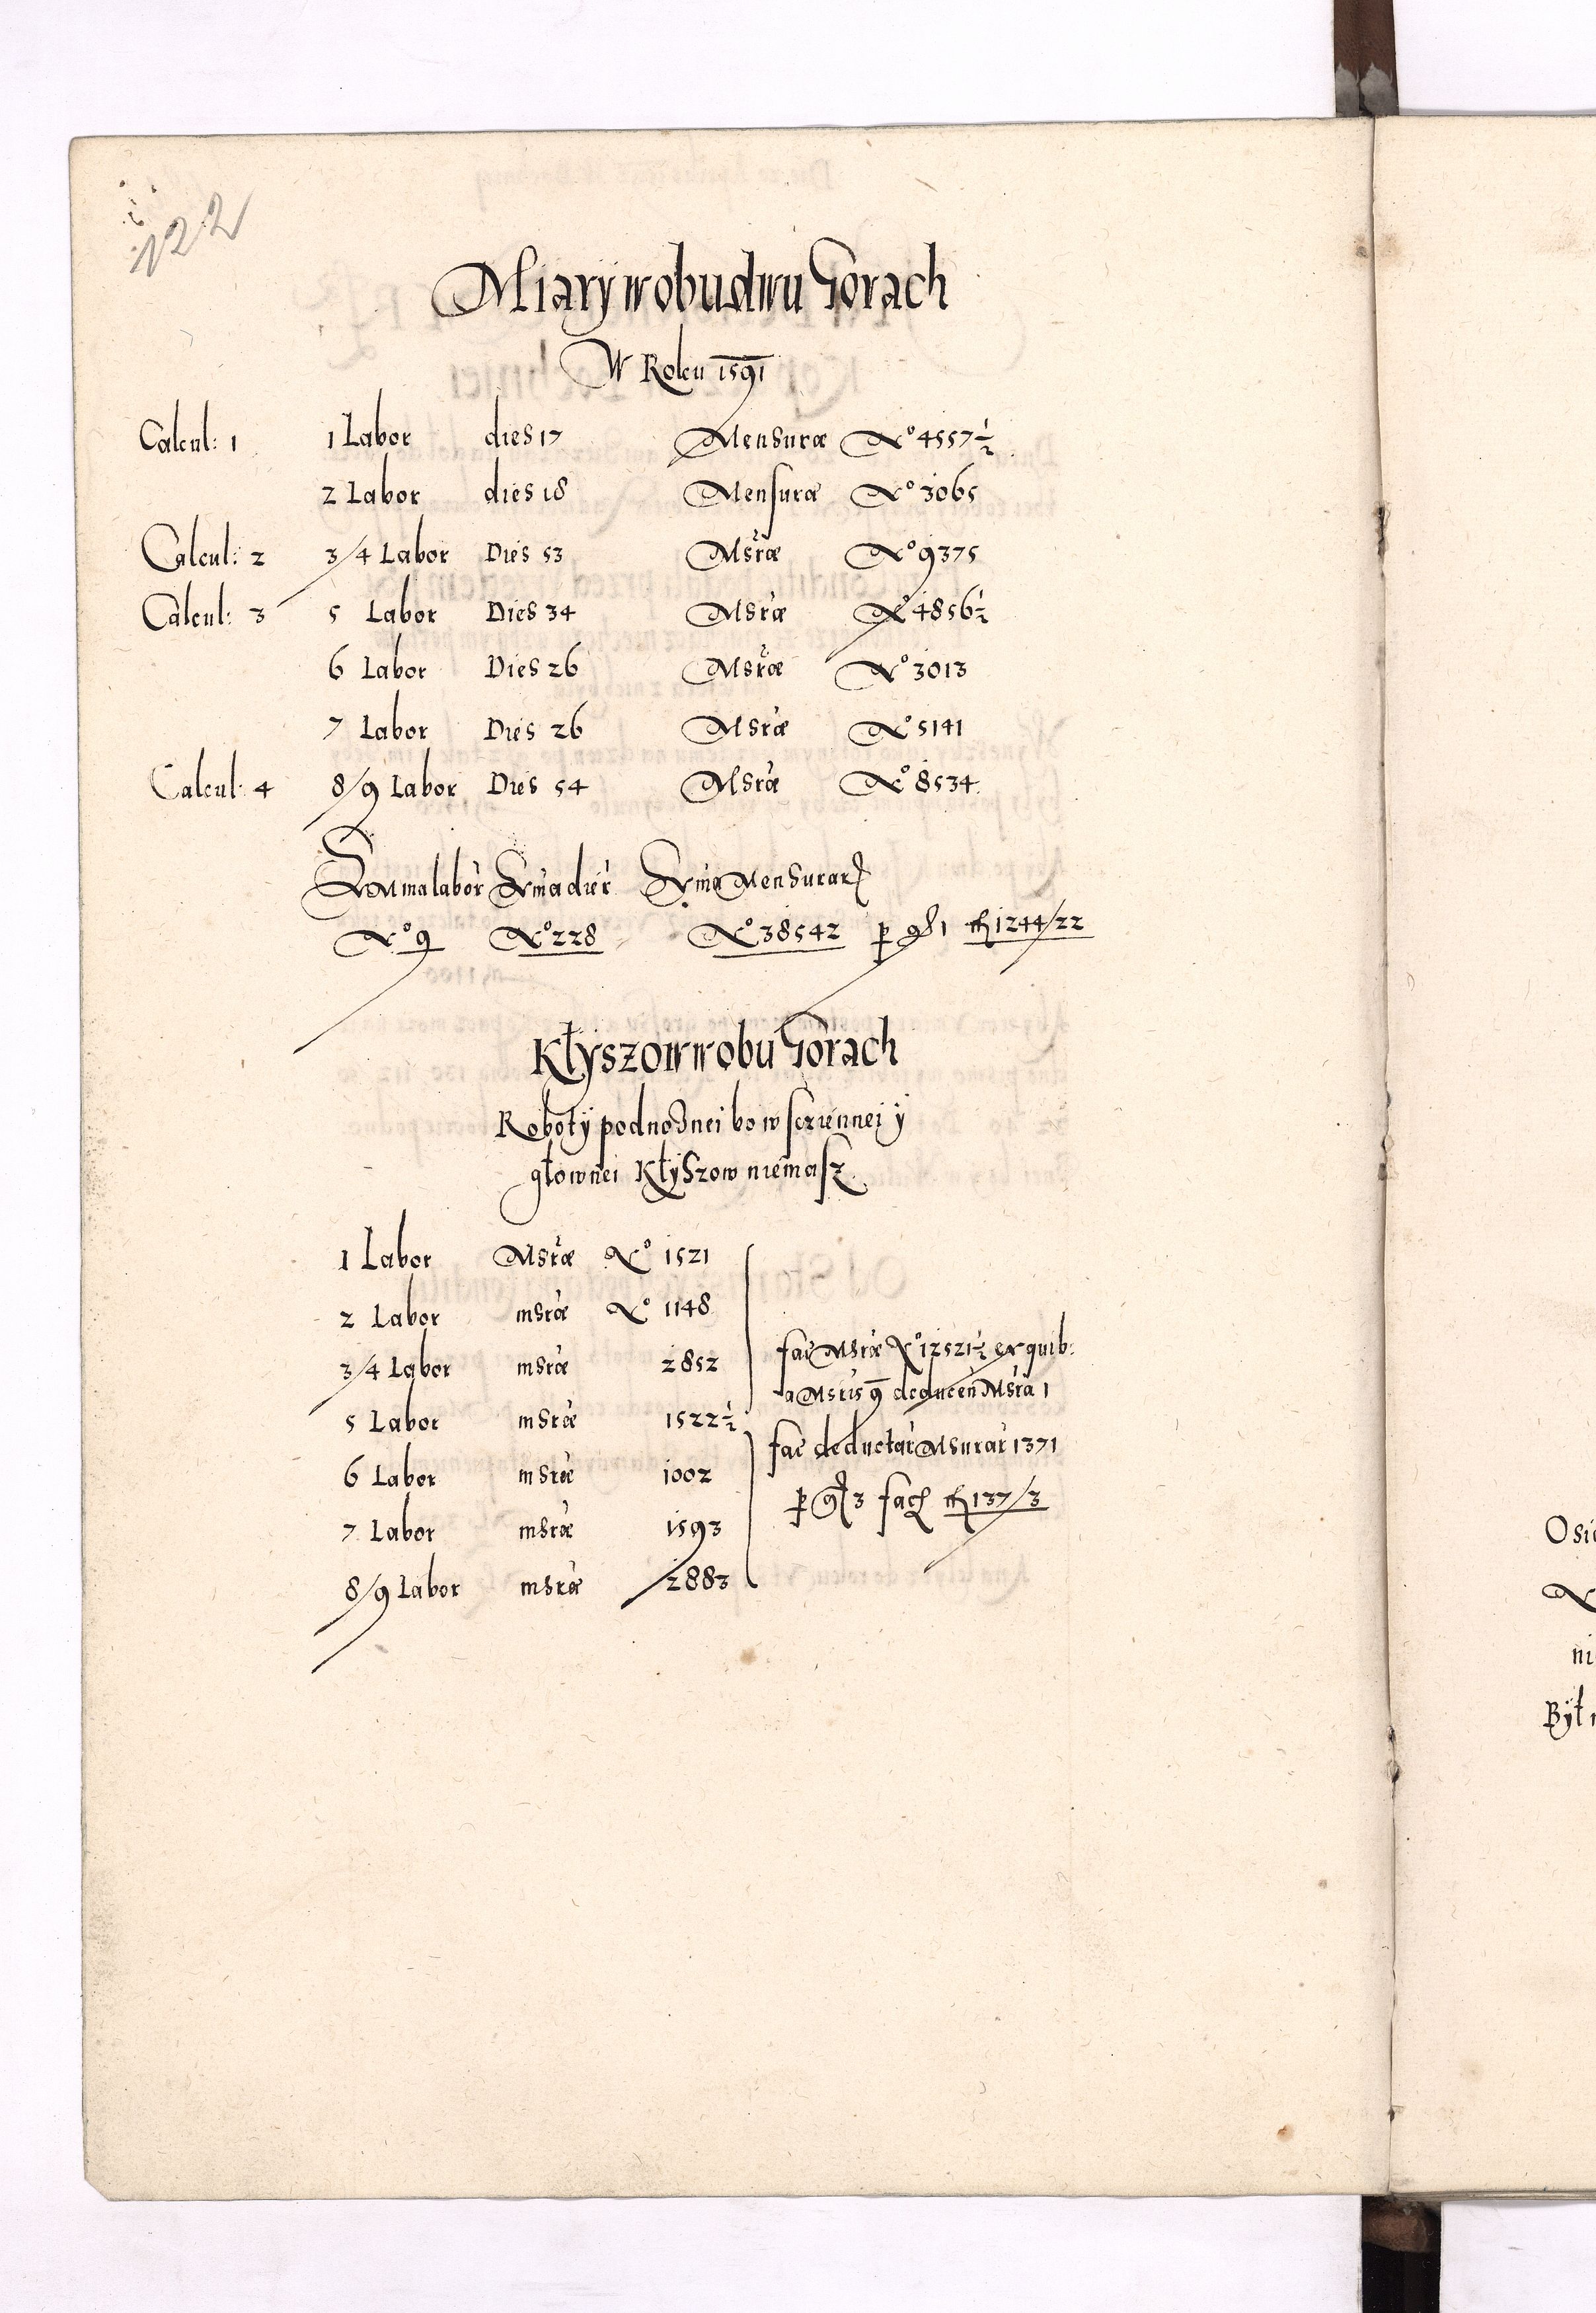 122
Miary w obudwu Gorach
W Roku 1591
Calcul: 1 1 Labor dies 17 Mensuræ No 4557½
2 Labor dies 18 Mensuræ No 3065
Calcul: 2 3/4 Labor Dies 53 Msræ No 9375
Calcul: 3 5 Labor Dies 34 Msræ No 4856½
6 Labor Dies 26 Msræ No 3013
7 Labor Dies 26 Msræ No 5141
Calcul: 4 8/9 Labor Dies 54 Msræ No 8534
Summa labor Suma dier Suma Mensurar
No 9 No 228 No 38542 p gr 1 fl 1244/22
Kłyszow w obu Gorach
Roboty podnožnei bo w scziennei y
głownei Kłyszow niemasz
1 Labor Msræ No 1521
2 Labor msræ No 1148
3/4 Labor msræ 2852
5 Labor msræ 1522½
6 Labor msræ 1002
7 Labor msræ 1593
8/9 Labor msræ 2883
fac Msræ No 12521½ ex quib:
a Msris 9 deducen Msra 1
fac deductar Msurar 1371
p gr 3 fac fl 137/3
Osi
N
ni
Był